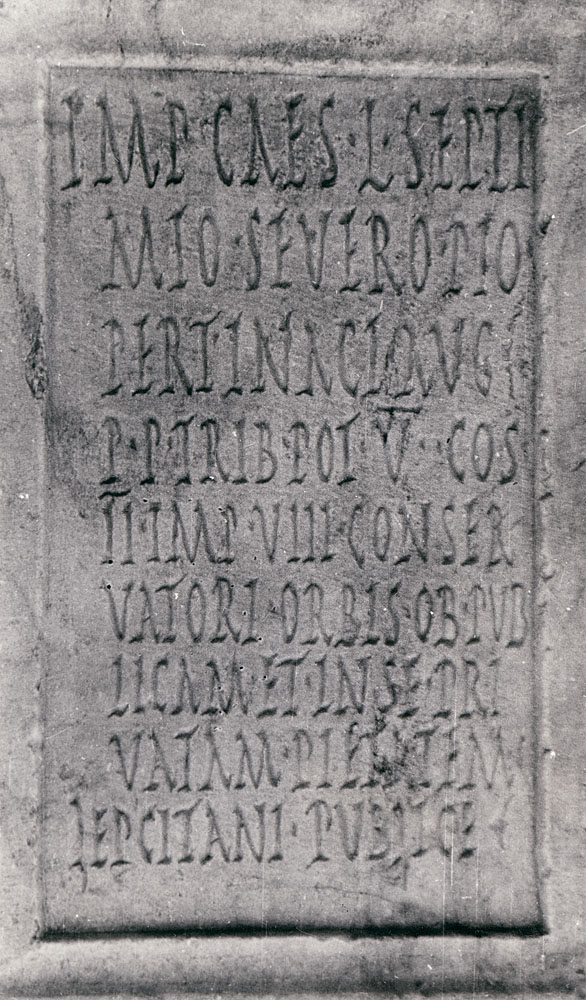 IMP·CAES·L·SEPTI
MIO·SEVERO·PIO
PERTINACI·AVG
P·P·TRIB·POT V COS
II·IMP·VIII·CONSER
VATORI·ORBIS·OB·PVB
LICAM·ET·IN·SE·PRI
VATAM·PIETATEM
LEPCITANI·PVBLICE